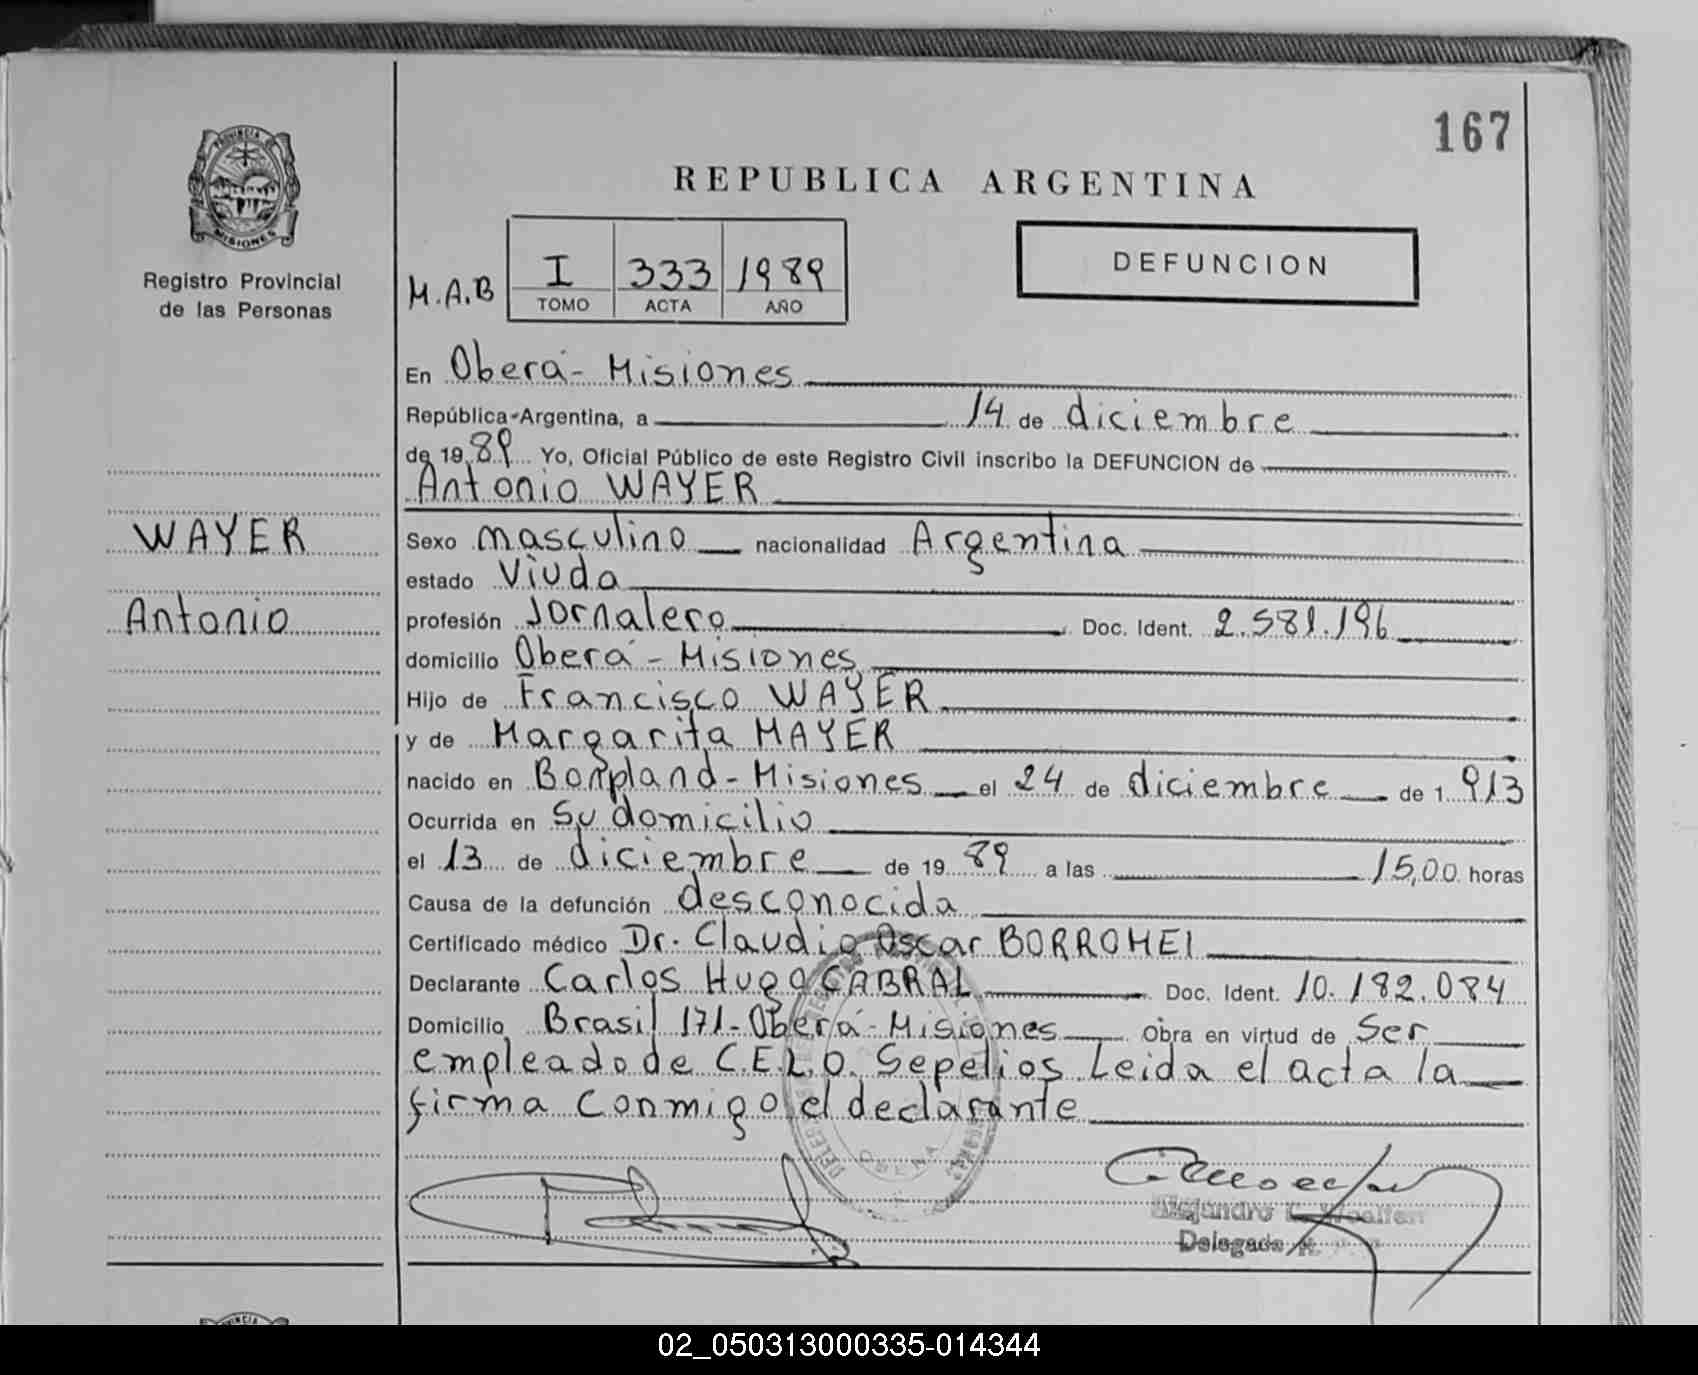 167
PROVINCIA DE
MISIONES
Registro Provincial
de las Personas
REPUBLICA ARGENTINA
M.A.B
I 333 1989
TOMO ACTA AÑO
DEFUNCION
En Oberá - Misiones
República Argentina, a 14 de diciembre
de 19 89 Yo, Oficial Público de este Registro Civil inscribo la DEFUNCION de
Antonio WAYER
WAYER
Antonio
Sexo masculino nacionalidad Argentina
estado Viudo
profesión Jornalero Doc. Ident. 2.581.196
domicilio Oberá - Misiones
Hijo de Francisco WAYER
y de Margarita MAYER
nacido en Bonpland - Misiones el 24 de diciembre de 1 913
Ocurrida en Su domicilio
el 13 de diciembre de 19 89 a las 15,00 horas
Causa de la defunción desconocida
Certificado médico Dr. Claudio Oscar BORROMEI
Declarante Carlos Hugo CABRAL Doc. Ident. 10.182.084
Domicilio Brasil 171 - Oberá - Misiones Obra en virtud de Ser
empleado de C.E.L.O. Sepelios Leida el acta la
firma conmigo el declarante
OBERA
Alejandro
Delegado
02_050313000335-014344